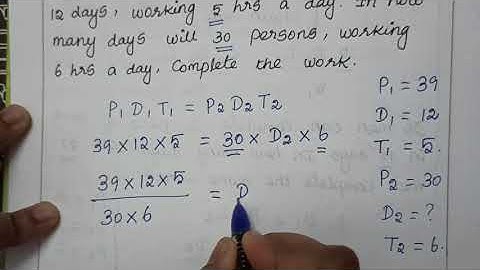 12 days, working 5 hrs a day. In how
many days will 30 persons, working
6 hrs a day, Complete the work.
P₁ D₁ T₁ = P₂ D₂ T₂
39 × 12 × 5 = 30 × D₂ × 6
39 × 12 × 5 / 30 × 6 = D
P₁ = 39
D₁ = 12
T₁ = 5.
P₂ = 30
D₂ = ?
T₂ = 6.